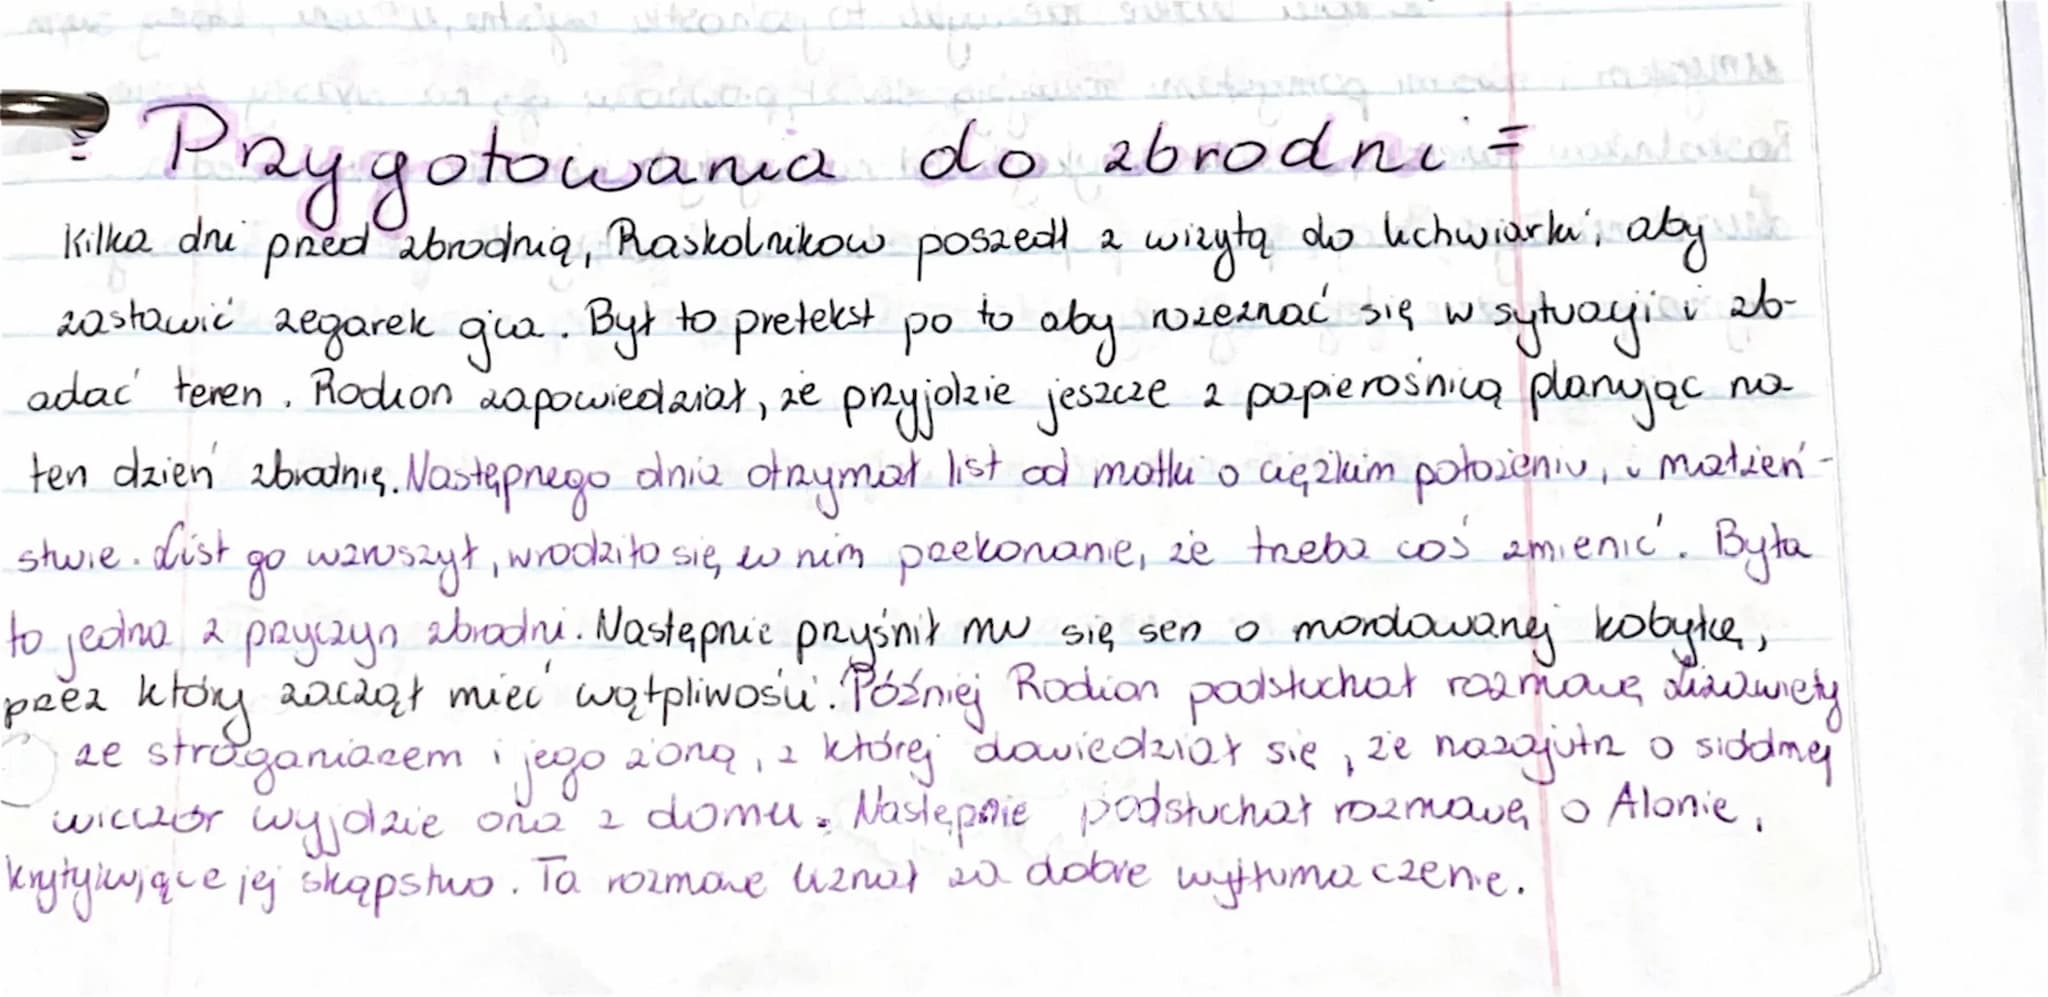 = Przygotowania do zbrodni =
Kilka dni przed zbrodnią, Raskolnikow poszedł z wizytą do lichwiarki, aby
zastawić zegarek ojca. Był to pretekst po to aby rozeznać się w sytuacji i zb-
adać teren. Rodion zapowiedział, że przyjdzie jeszcze z papierośnicą planując na
ten dzień zbrodnię. Następnego dnia otrzymał list od matki o ciężkim położeniu, i małżeń-
stwie. List go wzruszył, wrodziło się w nim przekonanie, że trzeba coś zmienić. Była
to jedna z przyczyn zbrodni. Następnie przyśnił mu się sen o mordowanej kobyłce,
przez który zaczął mieć wątpliwości. Później Rodion podsłuchał rozmowę Lizawiety
ze straganiarzem i jego żoną, z której dowiedział się, że nazajutrz o siódmej
wieczór wyjdzie ona z domu. Następnie podsłuchał rozmowę o Alonie,
krytykujące jej skąpstwo. Ta rozmowe uznał za dobre wytłumaczenie.